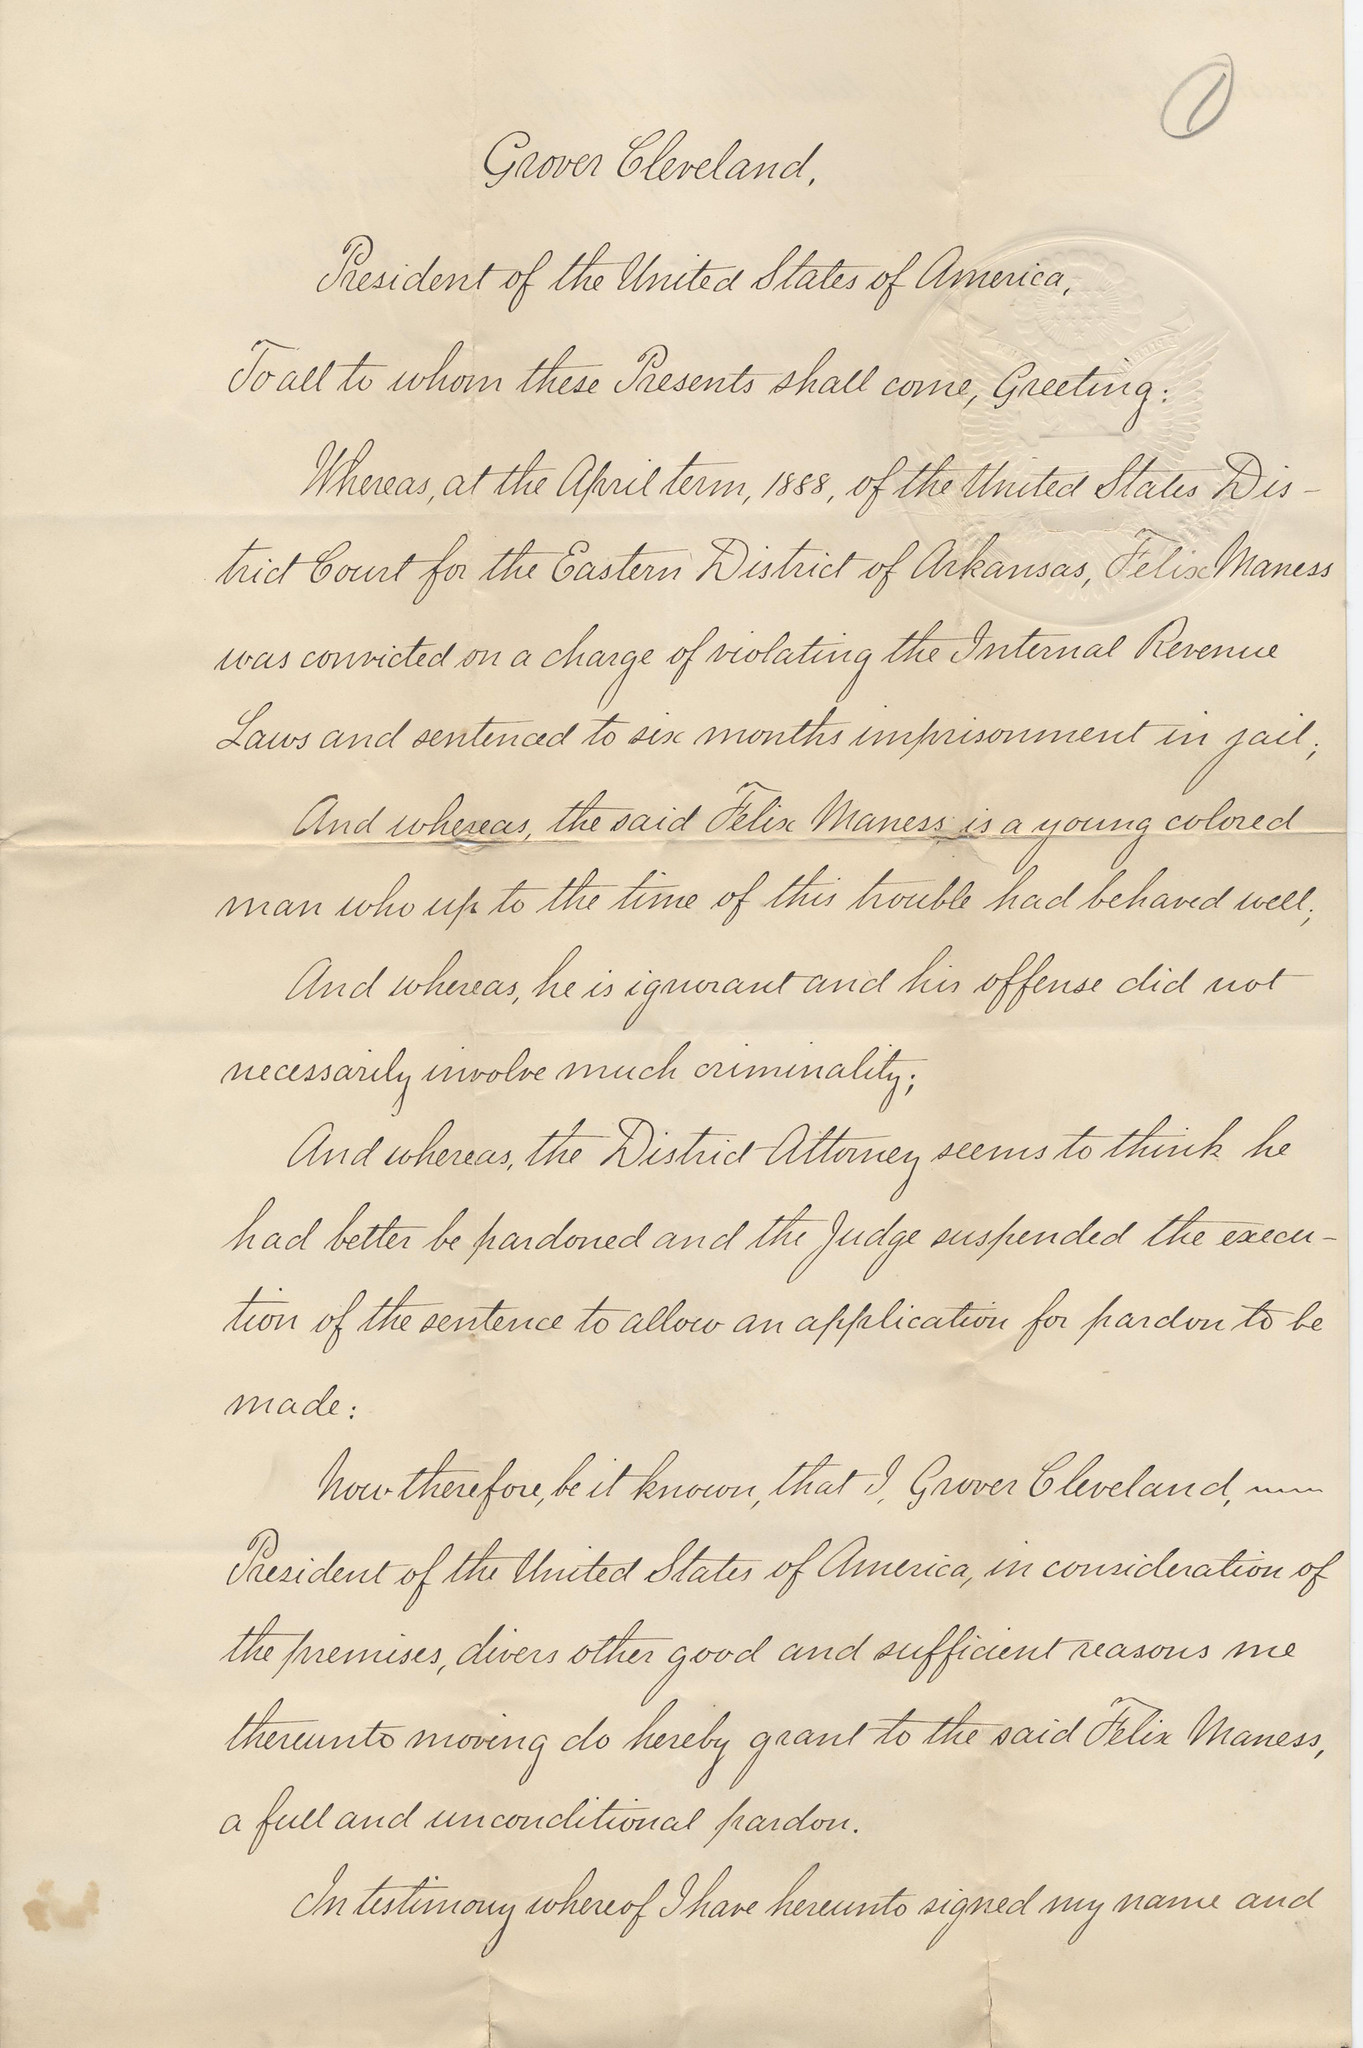 1
Grover Cleveland,
President of the United States of America,
To all to whom these Presents shall come, Greeting:
Whereas, at the April term, 1888, of the United States Dis-
trict Court for the Eastern District of Arkansas, Felix Maness
was convicted on a charge of violating the Internal Revenue
Laws and sentenced to six months imprisonment in jail;
And whereas, the said Felix Maness is a young colored
man who up to the time of this trouble had behaved well;
And whereas, he is ignorant and his offense did not
necessarily involve much criminality;
And whereas, the District Attorney seems to think he
had better be pardoned and the Judge suspended the execu-
tion of the sentence to allow an application for pardon to be
made:
Now therefore, be it known, that I, Grover Cleveland,
President of the United States of America, in consideration of
the premises, divers other good and sufficient reasons me
thereunto moving do hereby grant to the said Felix Maness,
a full and unconditional pardon.
In testimony whereof I have hereunto signed my name and